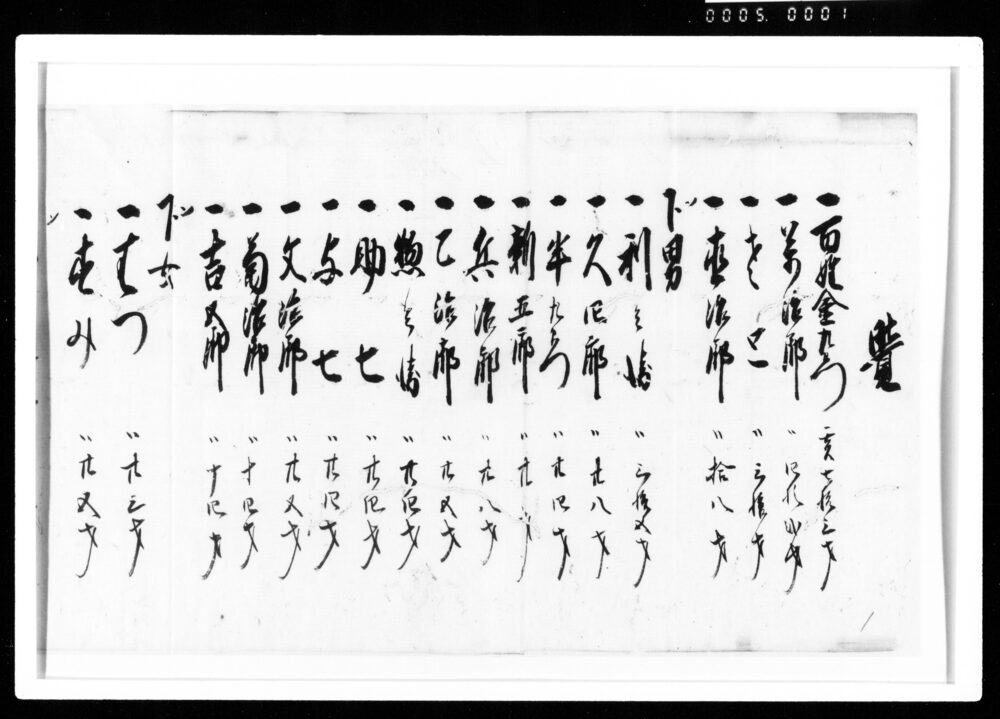 0005. 0001
覚
一 百姓 金九郎 亥七拾三才
一 万治郎 〃 四拾弐才
一 〃 三拾才
一 直治郎 〃 拾八才
下男
一 利兵衛 〃 三拾五才
一 久四郎 〃 廿八才
一 半九郎 〃 廿四才
一 新五郎 〃 廿才
一 兵治郎 〃 廿八才
一 乙治郎 〃 廿五才
一 惣兵衛 〃 廿四才
一 助七 〃 廿四才
一 与七 〃 廿四才
一 文治郎 〃 廿五才
一 菊治郎 〃 十四才
一 吉五郎 〃 十四才
下女
一 まつ 〃 廿三才
一 〃 廿五才